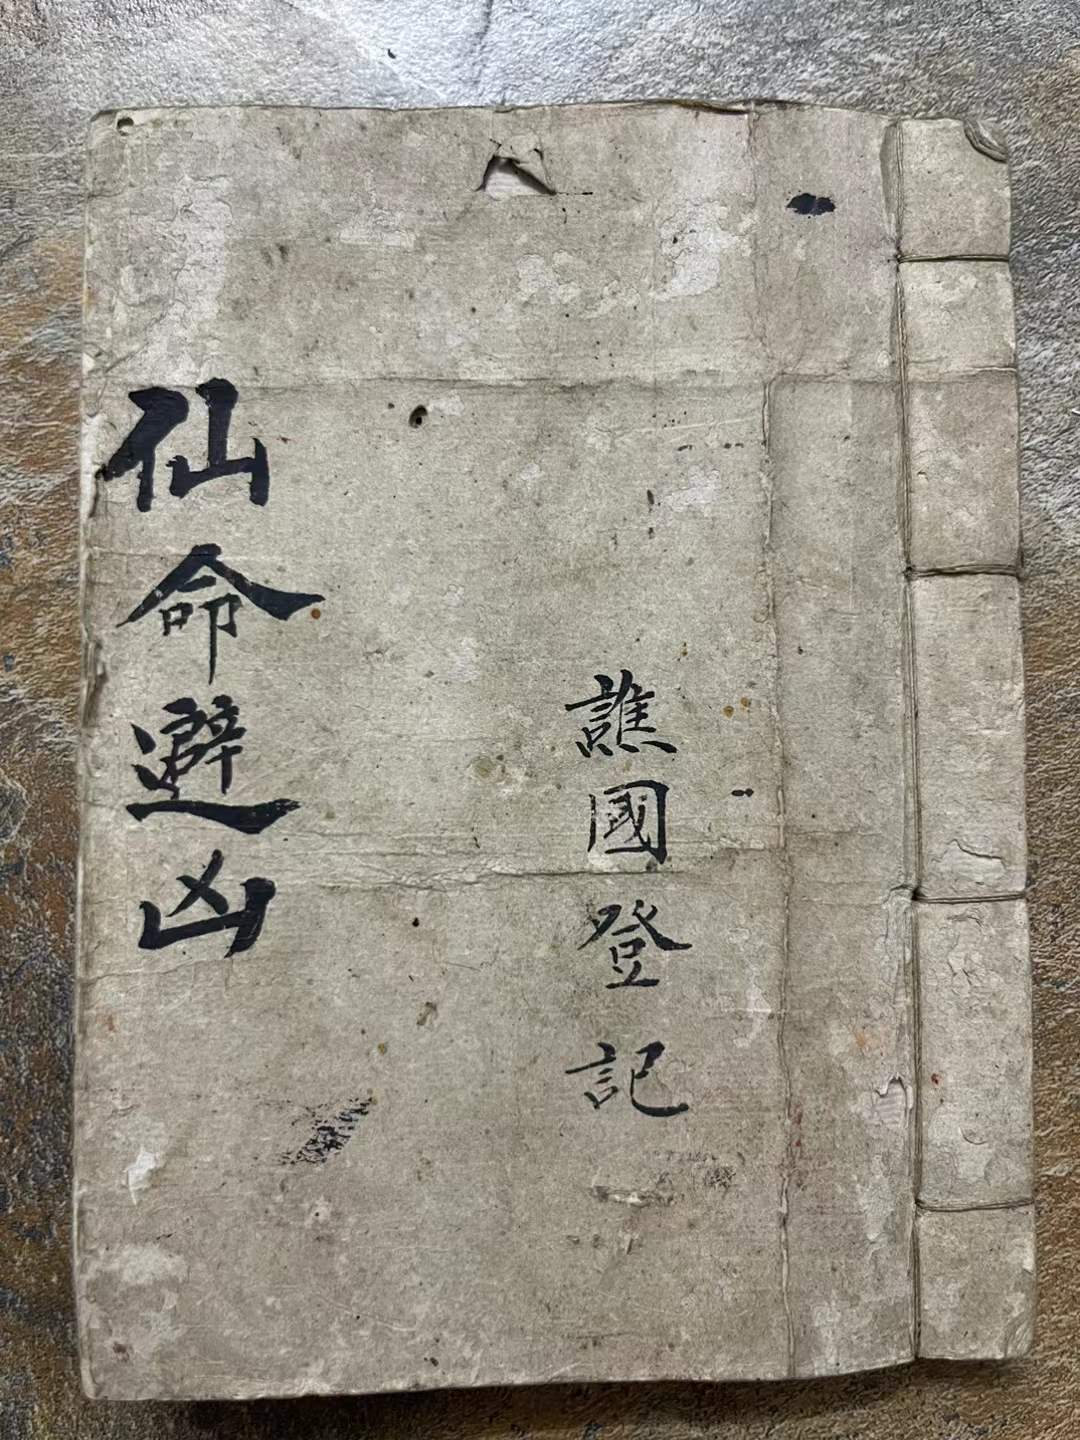 譙國登記
仙命避凶